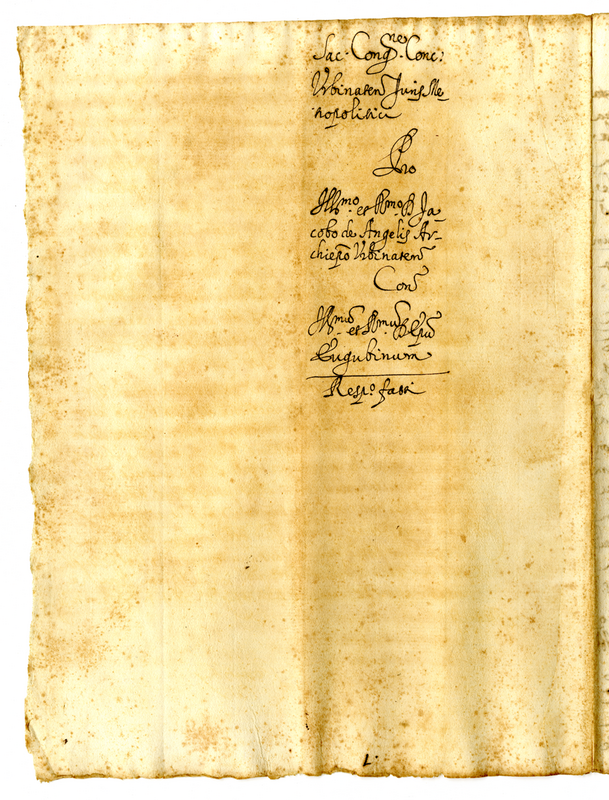 Sac. Cong.ne Conc:
Urbinaten Juris Me-
tropolitici
Pro
Ill.mo et R.mo D Ja-
cobo de Angelis Ar-
chiep̃o Urbinaten
Con
Ill.mũ et R.mũ D Ep̃ũ
Eugubinum
Resp.o facti
L.